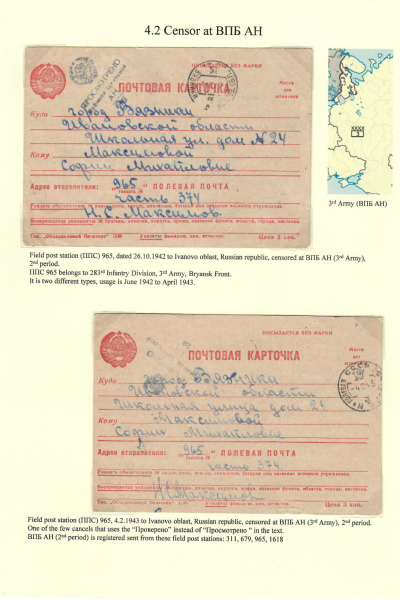 4.2 Censor at ВПБ АН
ПРОСМОТРЕНО
ПОСЫЛАЕТСЯ БЕЗ МАРКИ
ПОЧТОВАЯ КАРТОЧКА
Место
для
Куда город Вязники
Ивановской области
Школьная ул. дом № 24
Кому Максимовой
Софии Михайловне
Адрес отправителя: 965 ПОЛЕВАЯ ПОЧТА
часть 374
Н.С. Максимов.
Цена 3 коп.
XXXX
3rd Army (ВПБ АН)
Field post station (ППС) 965, dated 26.10.1942 to Ivanovo oblast, Russian republic, censored at ВПБ АН (3rd Army),
2nd period.
ППС 965 belongs to 283rd Infantry Division, 3rd Army, Bryansk Front.
It is two different types, usage is June 1942 to April 1943.
ПОСЫЛАЕТСЯ БЕЗ МАРКИ
ПОЧТОВАЯ КАРТОЧКА
Место
для
Куда город Вязники
Ивановской области
Школьная улица дом 24
Кому Максимовой
Софии Михайловне
Адрес отправителя: 965 ПОЛЕВАЯ ПОЧТА
часть 374
Н.С. Максимов
Цена 3 коп.
Field post station (ППС) 965, 4.2.1943 to Ivanovo oblast, Russian republic, censored at ВПБ АН (3rd Army), 2nd period.
One of the few cancels that uses the "Проверено" instead of "Просмотрено " in the text.
ВПБ АН (2nd period) is registered sent from these field post stations: 311, 679, 965, 1618